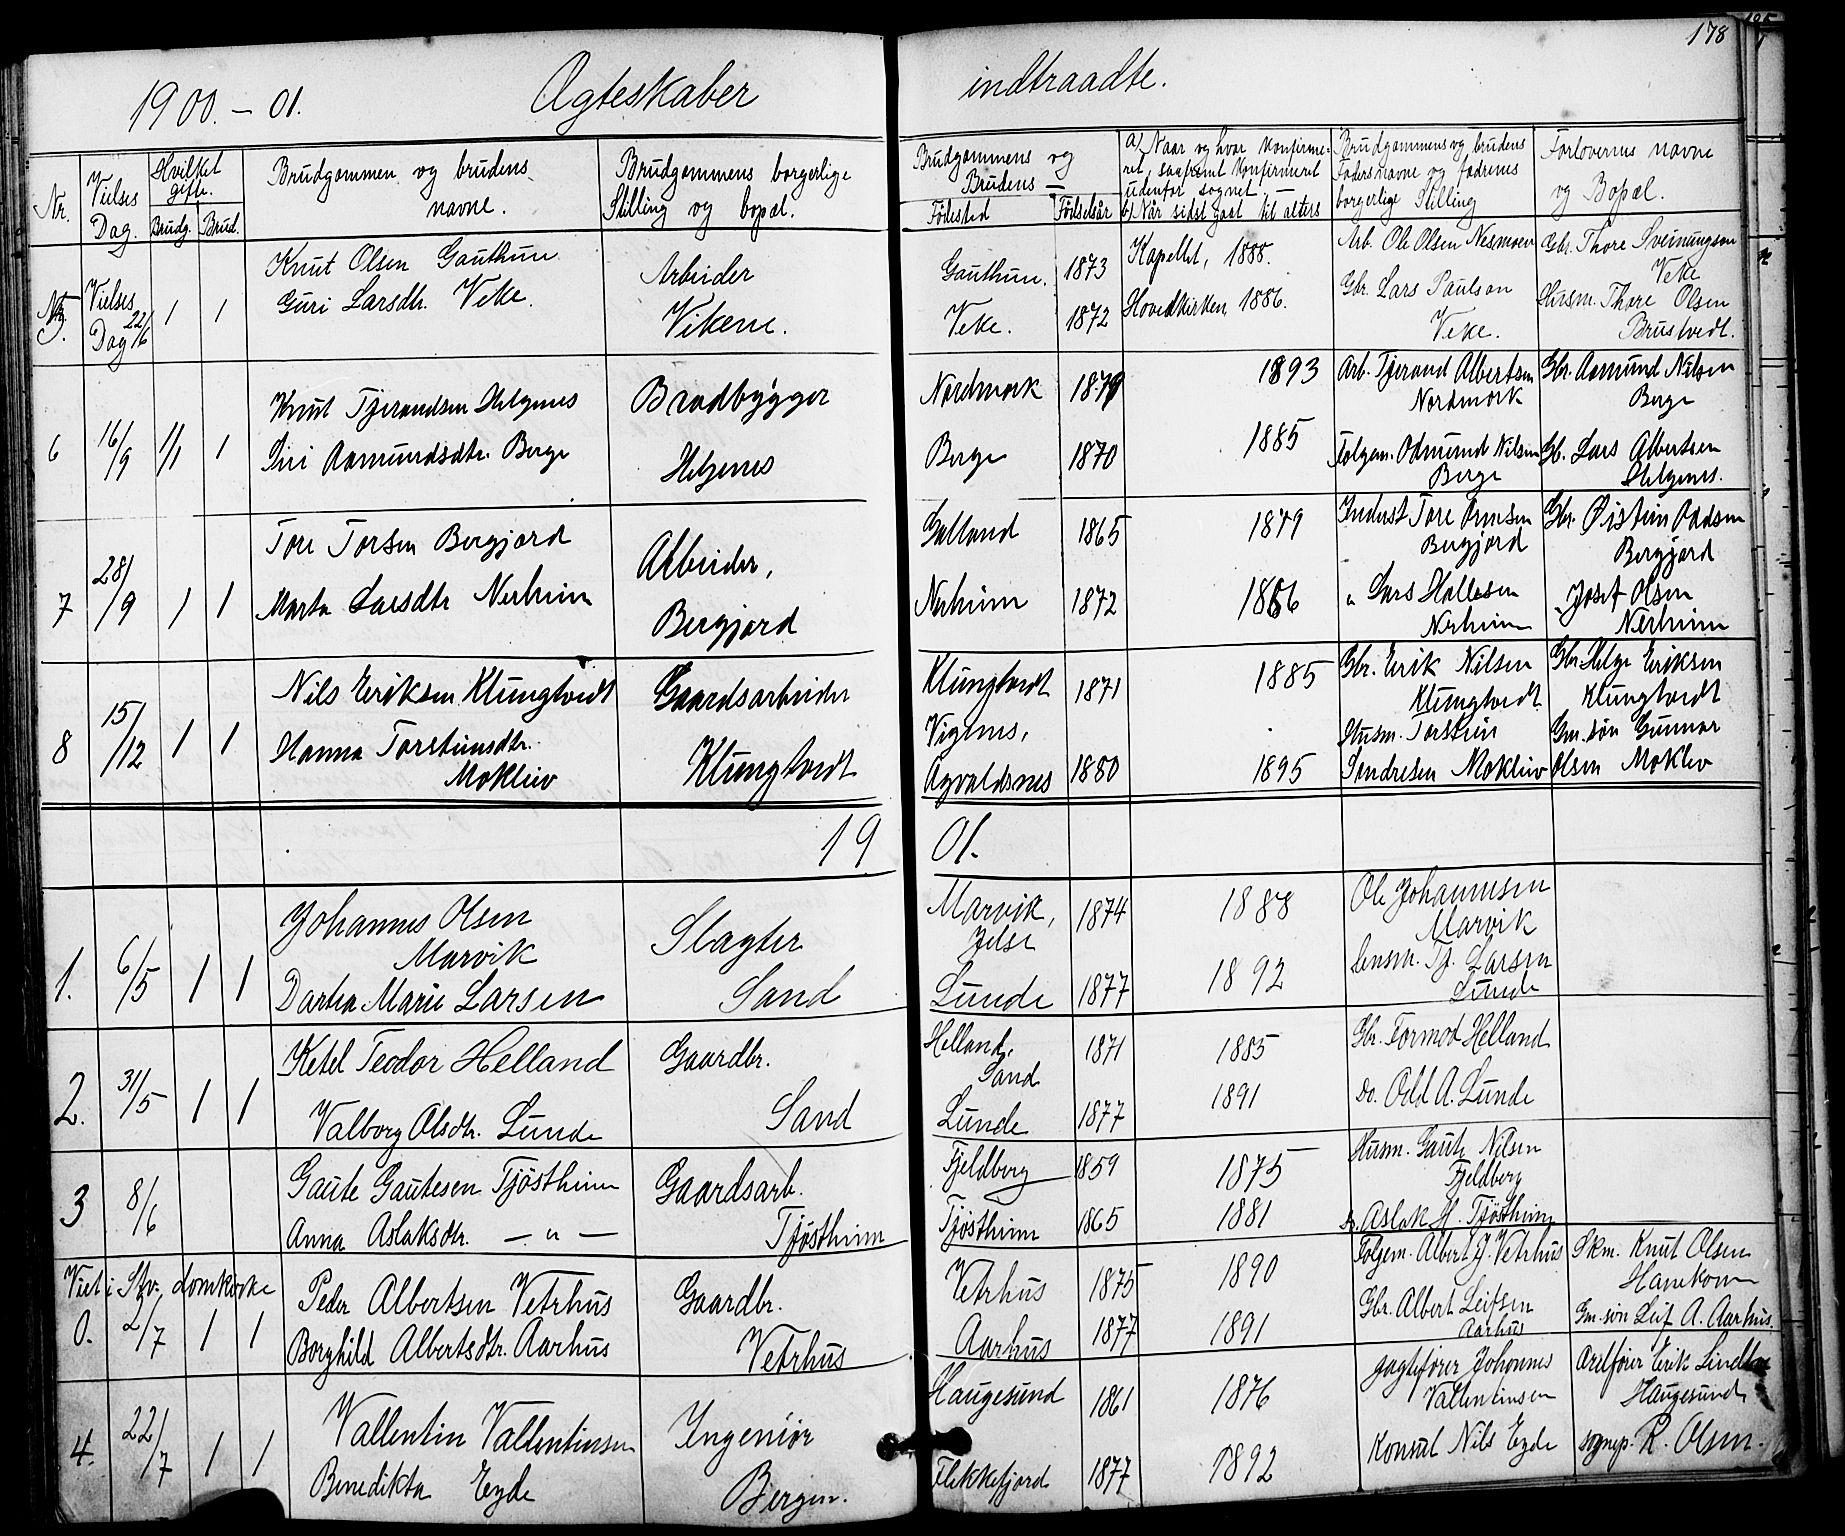 178
1900. – 01. Ægteskaber indtraadte.
Nr.
Vielses Dag.
Hvilket gifte.
Brudg. Brud.
Brudgommen og brudens navne.
Brudgommens borgerlige Stilling og bopæl.
Brudgommens og Brudens —
Fødested
Fødselsår
a) Naar og hvor konfirmeret, saafremt konfirmeret udenfor sognet.
b) Når sidst gaat til alters
Brudgommens og brudens Faders navne og fædrenes borgerlige Stilling
Forlovernes navne og Bopæl.
5. Vielses Dag 22/6 1 1
Knut Olsen Gauthun Arbeider Gauthun. 1873 Kapellet, 1888. Arb. Ole Olsen Nesmoen Gbr. Thore Sveinungsen Veke
Guri Larsdtr. Veke. Vikene. Veke. 1872 Hovedkirken, 1886. Gbr. Lars Paulsen Veke. Husm. Thore Olsen Brustvedt.
6 16/9 1/1 1
Knut Tjerandsen Helgenes Brødbygger Nordmork 1879 1893 Arb. Tjerand Albertsen Nordmork Gbr. Aamund Nilsen Berge
Siri Aamundsdtr. Berge Helgenes Berge 1870 1885 Folgem. Odmund Nilsen Berge Gb. Lars Albertsen Helgenes.
7 28/9 1 1
Tore Torsen Bergjord Arbeider, Galland 1865 1879 Inderst Tore Bergjord Gbr. Øistein Oddsen Bergjord
Marta Larsdtr Nerheim Bergjord Nerheim 1872 1886 " Lars Hallesen Nerheim Josef Olsen Nerheim
8 15/12 1 1
Nils Eriksen Klungtvedt Gaardsarbeider Klungtvedt 1871 1885 Gbr. Erik Nilsen Klungtvedt Gbr. Helge Eriksen Klungtvedt
Hanna Torsteinsdtr. Mokleiv Klungtvedt Vignes, Agvaldsnes 1880 1895 Husm. Torstein Sondresen Mokleiv Gm. søn Gunnar Olsen Moklev
1901.
1. 6/5 1 1
Johannes Olsen Marvik Slagter Marvik, Jelse 1874 1888 Ole Johannesen Marvik
Dartea Marie Larsen Sand Lunde 1877 1892 Lensm. Tj. Larsen Lunde
2. 31/5 1 1
Ketel Teodor Helland Gaardbr. Helland, Sand 1871 1885 Gbr. Tormod Helland
Valborg Olsdtr. Lunde Sand Lunde 1877 1891 Do. Odd A. Lunde
3 8/6
Gaute Gautesen Tjöstheim Gaardsarb. Fjeldberg 1859 1875 Husm. Gaute Nilsen Fjeldberg
Anna Aslaksdtr. — " — Tjöstheim Tjöstheim 1865 1881 Do. Aslak H. Tjöstheim
Viet i Stv. domkirke
0. 2/7 1 1
Peder Albertsen Vetrhus Gaardbr. Vetrhus 1875 1890 Folgem. Albert J. Vetrhus Skm. Knut Olsen Hanekam
Borghild Albertsdtr. Aarhus Vetrhus Aarhus 1877 1891 Gbr. Albert Leifsen Aarhus Gm. søn Leif A. Aarhus.
4. 22/7 1 1
Vallentin Vallentinsen Ingeniør Haugesund 1861 1876 Jagtefører Johannes Vallentinsen Erik Haugesund
Benedikta Eyde Bergen. Flekkefjord 1877 1892 Konsul Nils Eyde sognep. R. Olsen.